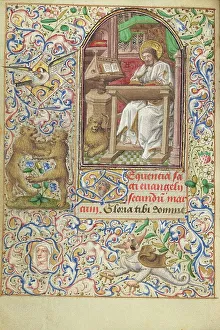 Sequencia sa
cti euangelii
secundum mar
cum. Gloria tibi domine